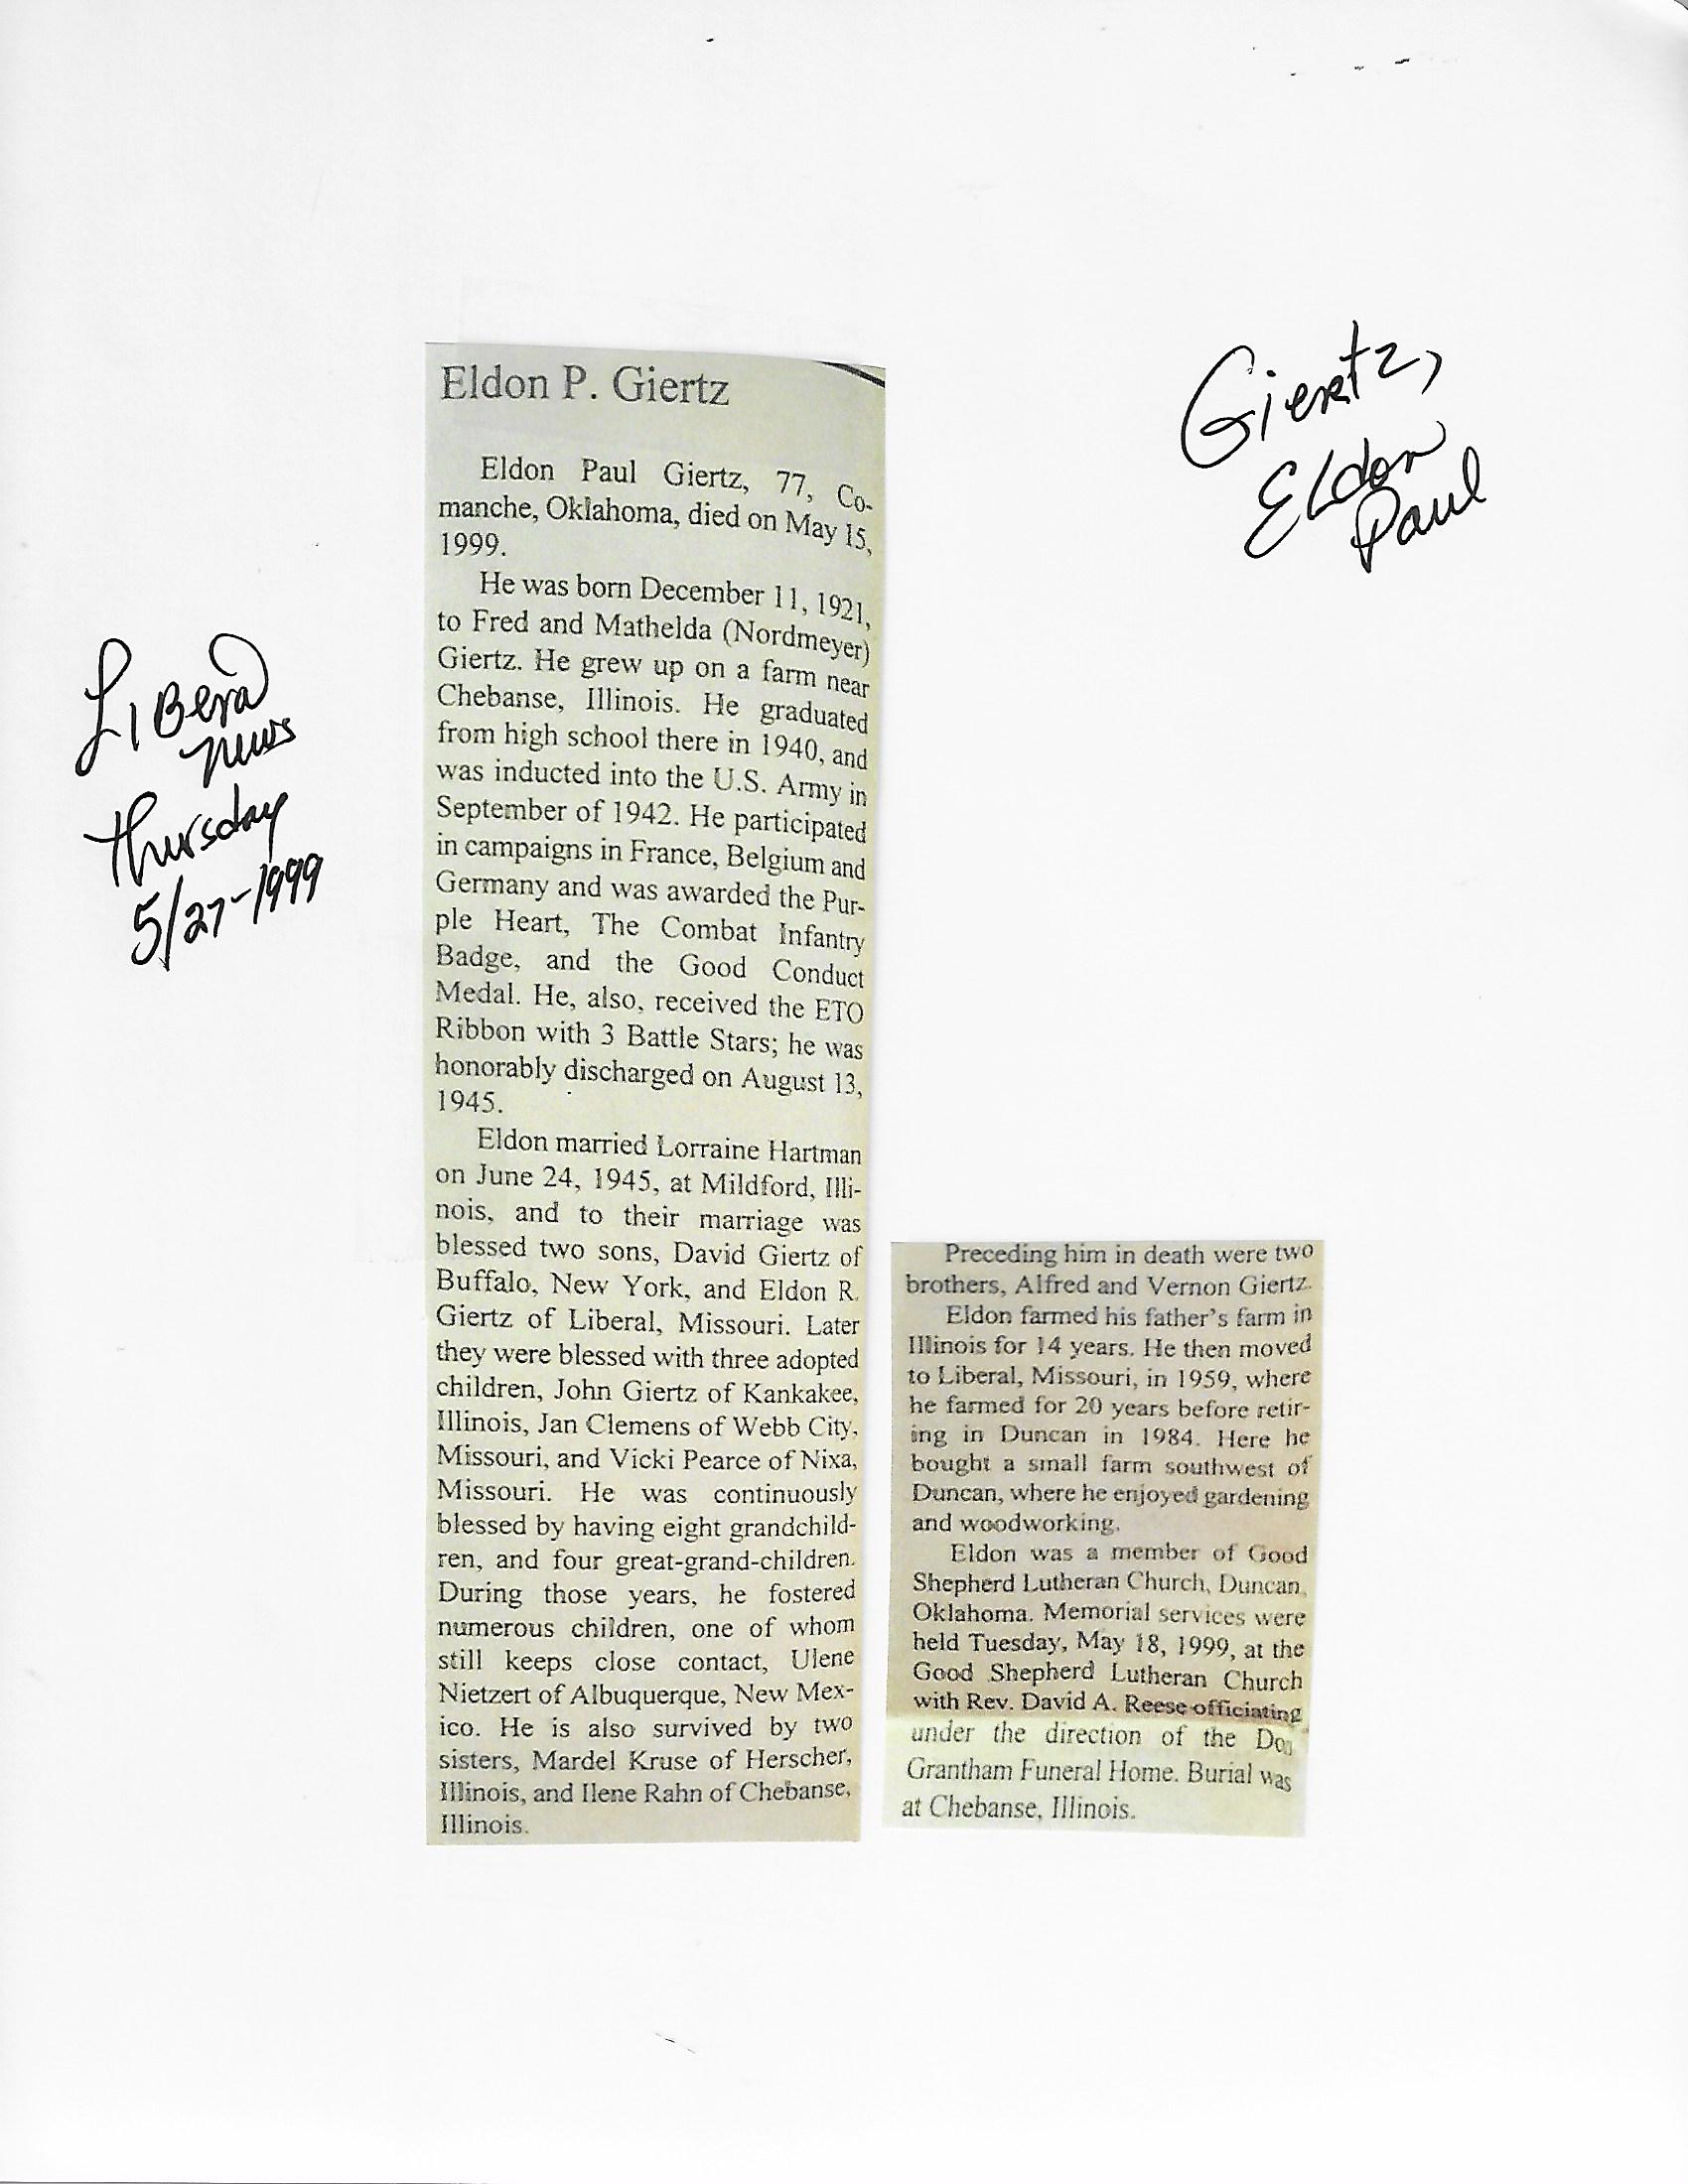 Giertz,
Eldon
Paul
Liberal
News
Thursday
5/27-1999
Eldon P. Giertz
Eldon Paul Giertz, 77, Co-
manche, Oklahoma, died on May 15,
1999.
He was born December 11, 1921,
to Fred and Mathelda (Nordmeyer)
Giertz. He grew up on a farm near
Chebanse, Illinois. He graduated
from high school there in 1940, and
was inducted into the U.S. Army in
September of 1942. He participated
in campaigns in France, Belgium and
Germany and was awarded the Pur-
ple Heart, The Combat Infantry
Badge, and the Good Conduct
Medal. He, also, received the ETO
Ribbon with 3 Battle Stars; he was
honorably discharged on August 13,
1945.
Eldon married Lorraine Hartman
on June 24, 1945, at Mildford, Illi-
nois, and to their marriage was
blessed two sons, David Giertz of
Buffalo, New York, and Eldon R.
Giertz of Liberal, Missouri. Later
they were blessed with three adopted
children, John Giertz of Kankakee,
Illinois, Jan Clemens of Webb City,
Missouri, and Vicki Pearce of Nixa,
Missouri. He was continuously
blessed by having eight grandchild-
ren, and four great-grand-children.
During those years, he fostered
numerous children, one of whom
still keeps close contact, Ulene
Nietzert of Albuquerque, New Mex-
ico. He is also survived by two
sisters, Mardel Kruse of Herscher,
Illinois, and Ilene Rahn of Chebanse,
Illinois.
Preceding him in death were two
brothers, Alfred and Vernon Giertz.
Eldon farmed his father's farm in
Illinois for 14 years. He then moved
to Liberal, Missouri, in 1959, where
he farmed for 20 years before retir-
ing in Duncan in 1984. Here he
bought a small farm southwest of
Duncan, where he enjoyed gardening
and woodworking.
Eldon was a member of Good
Shepherd Lutheran Church, Duncan,
Oklahoma. Memorial services were
held Tuesday, May 18, 1999, at the
Good Shepherd Lutheran Church
with Rev. David A. Reese officiating
under the direction of the Don
Grantham Funeral Home. Burial was
at Chebanse, Illinois.